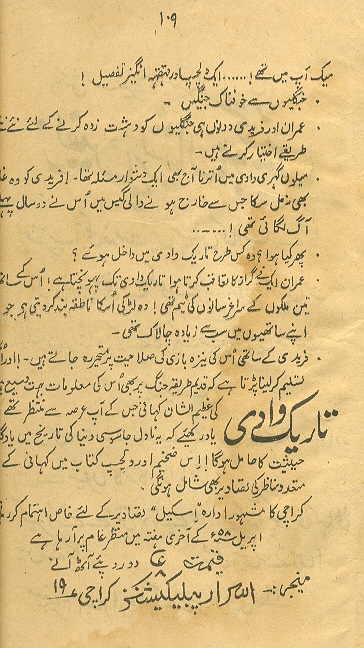 ۱۰۹
میک اَپ میں تھے! ...... ایک دلچسپ اور قہقہہ انگیز تفصیل!
• جنگلیوں سے خوفناک جنگیں۔
• عمران اور فریدی دونوں ہی جنگلیوں کو دہشت زدہ کرنے کے لئے نئے نئے
طریقے اختیار کرتے ہیں۔
• میلوں گہری وادی میں اُترنا آج بھی ایک دشوار مسئلہ تھا۔ فریدی کو وہ
بھی نہ مل سکا جس سے خارج ہونے والی گیس میں اُس نے دو سال پہلے
آگ لگائی تھی! ......
• پھر کیا ہوا؟ وہ کس طرح تاریک وادی میں داخل ہوئے؟
• عمران ایک کا تعاقب کرتا ہوا تاریک وادی تک پہونچتا ہے! اُس کے ساتھ
تین ملکوں کے سراغ رسانوں کی ٹیم تھی! وہ لڑکی اُس کا ناطقہ بند کر دیتی ہے جو
اپنے ساتھیوں میں سب سے زیادہ چالاک تھی۔
• فریدی کے ساتھی اُس کی نیزہ بازی کی صلاحیت پر متحیر رہ جاتے ہیں۔
تسلیم کر لینا پڑتا ہے کہ قدیم طریقہ جنگ پر بھی اُس کی معلومات بہت وسیع
تاریک وادی
کی عظیم الشان کہانی جس کے آپ عرصہ سے منتظر تھے
یاد رکھئے کہ یہ ناول جاسوسی دنیا کی تاریخ میں یادگار
حیثیت کا حامل ہوگا! اِس ضخیم اور دلچسپ کتاب میں کہانی کے
متعدد مناظر کی تصاویر بھی شامل ہونگی!
کراچی کا مشہور ادارہ "اسکیل" تصاویر کے لئے خاص اہتمام کر رہا
اپریل ۵۸ء کے آخری ہفتہ میں منظرِ عام پر آ رہا ہے
قیمت دو روپئے آٹھ آنے
منیجر:۔ اسرار پبلیکیشنز کراچی ۱۹